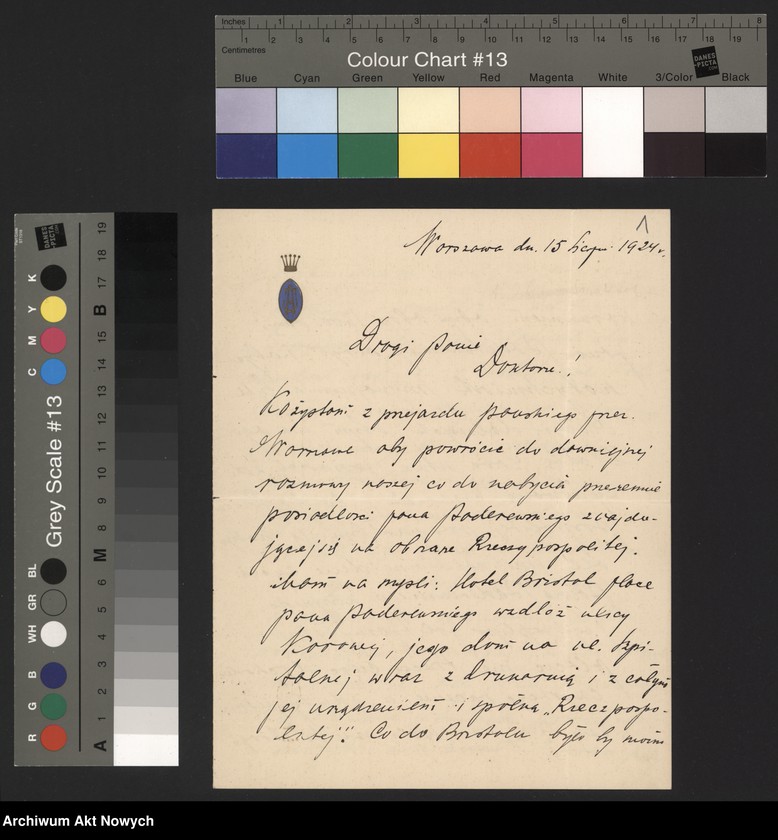 Inches 1 2 3 4 5 6 7 8
Centimetres 1 2 3 4 5 6 7 8 9 10 11 12 13 14 15 16 17 18 19
Colour Chart #13
DANES-PICTA.COM
Blue Cyan Green Yellow Red Magenta White 3/Color Black
Grey Scale #13
DANES-PICTA.COM
R G B WH GR BL C M Y K
A 1 2 3 4 5 6 M 8 9 10 11 12 13 14 15 B 17 18 19
1
Warszawa dn. 15 lipca 1924 r.
Drogi Panie
Doktorze!
Kożystam z przejazdu Pańskiego przez
Warszawę aby powrócić do dawniejszej
rozmowy naszej co do nabycia przezemnie
posiadłości pana Paderewskiego znajdu-
jącej się na obszarze Rzeczypospolitej.
Mam na myśli: Hotel Bristol place
pana Paderewskiego wzdłóż ulicy
Karowej, jego dom na ul. Szpi-
talnej wraz z drukarnią i z całym
jej urządzeniem i spółką „Rzeczpospo-
litej". Co do Bristolu było by moim
Archiwum Akt Nowych